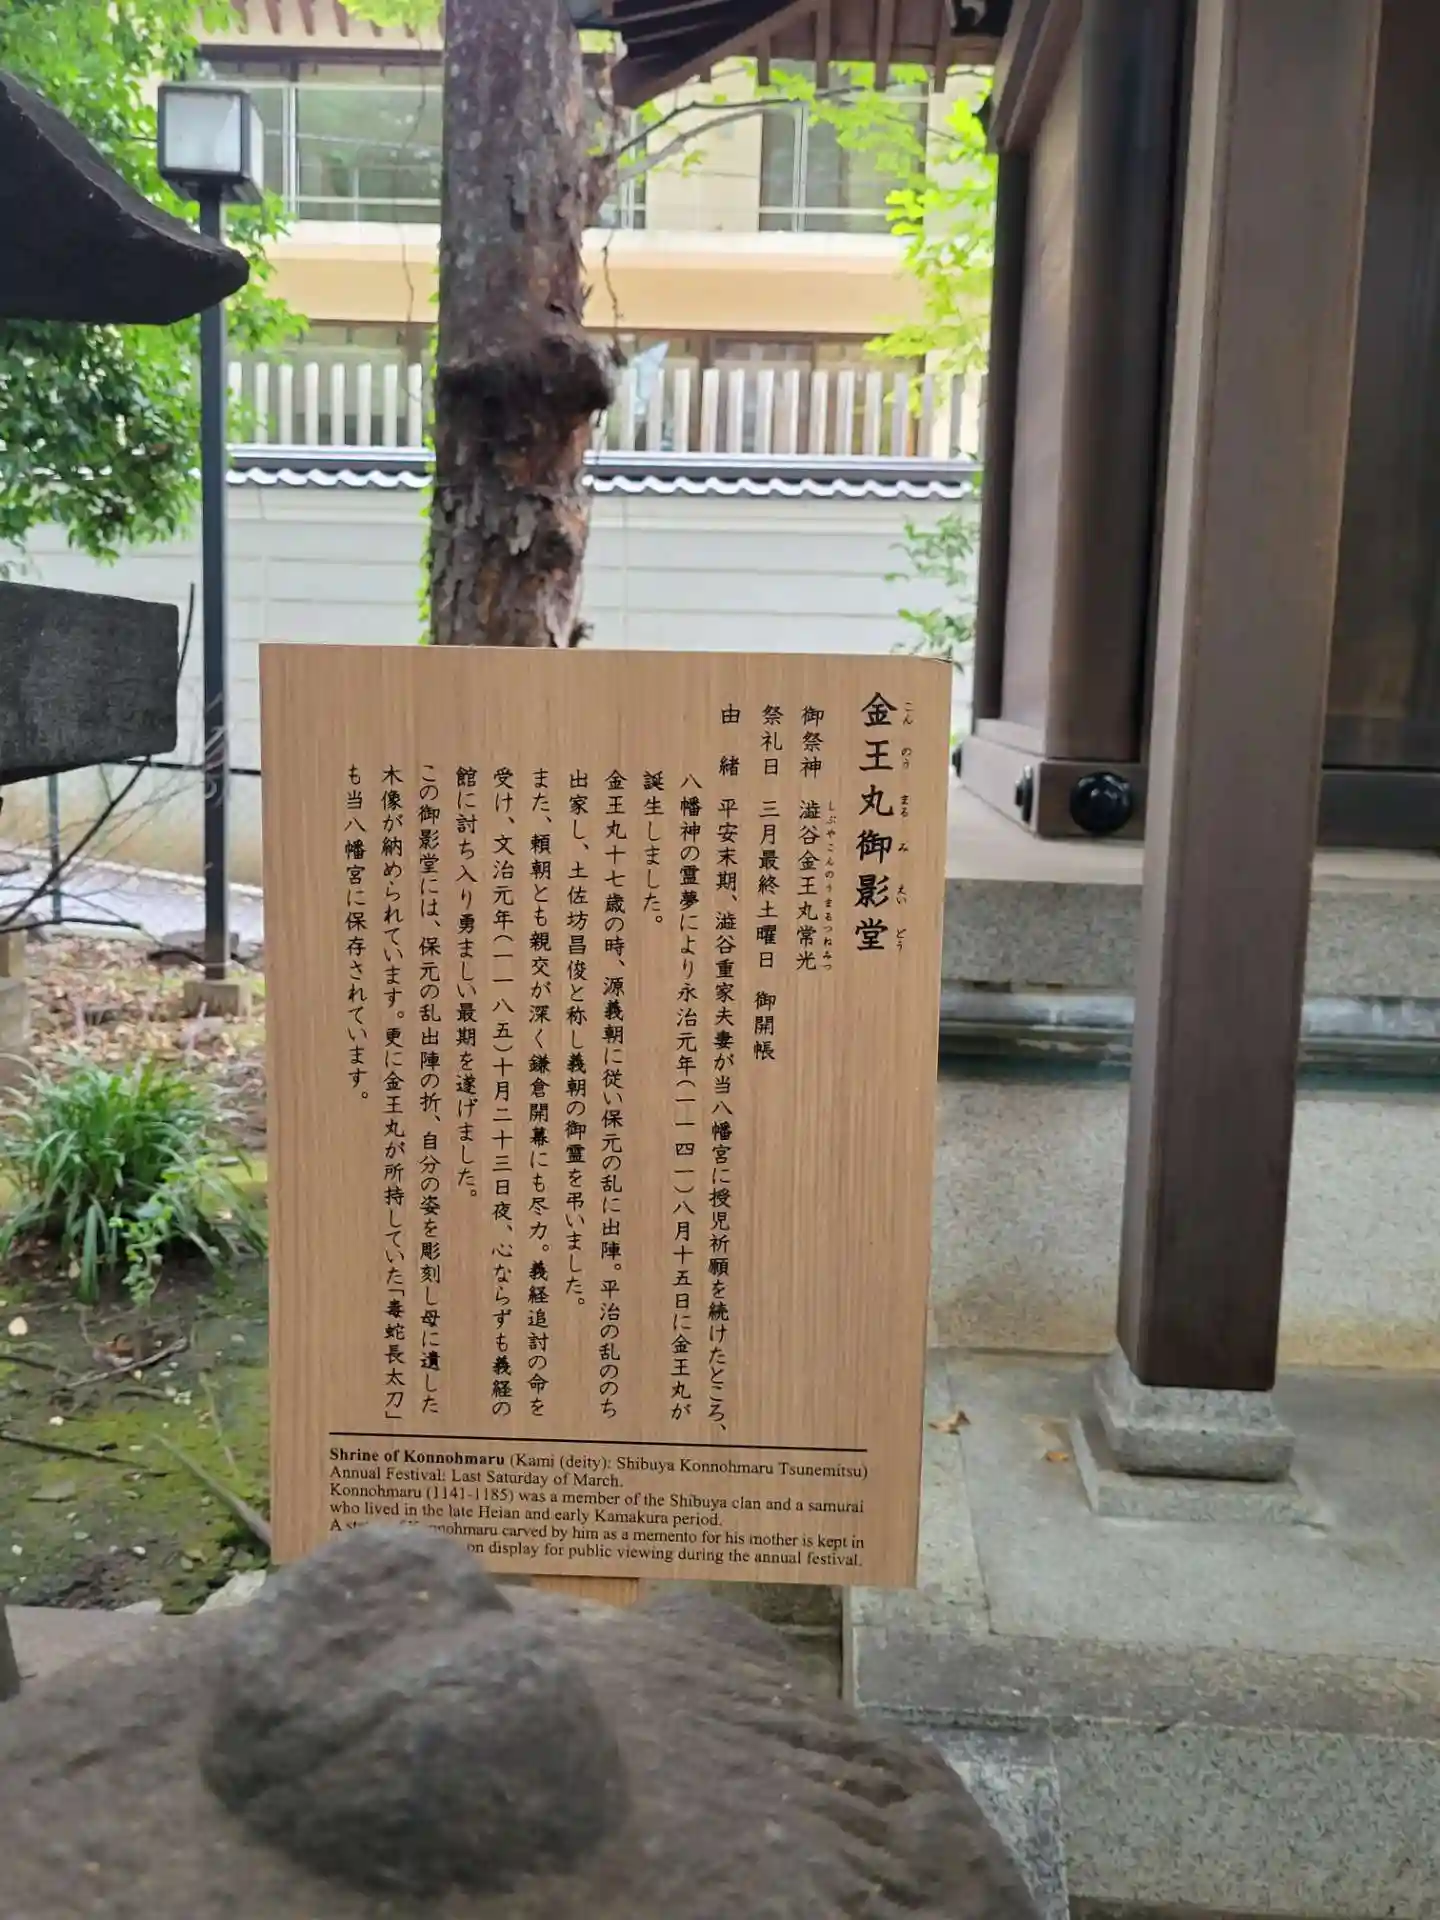 金王丸御影堂
こんのうまるみえいどう
御祭神 澁谷金王丸常光
しぶやこんのうまるつねみつ
祭礼日 三月最終土曜日 御開帳
由緒 平安末期、澁谷重家夫妻が当八幡宮に授児祈願を続けたところ、
八幡神の霊夢により永治元年(一一四一)八月十五日に金王丸が
誕生しました。
金王丸十七歳の時、源義朝に従い保元の乱に出陣。平治の乱ののち
出家し、土佐坊昌俊と称し義朝の御霊を弔いました。
また、頼朝とも親交が深く鎌倉開幕にも尽力。義経追討の命を
受け、文治元年(一一八五)十月二十三日夜、心ならずも義経の
館に討ち入り勇ましい最期を遂げました。
この御影堂には、保元の乱出陣の折、自分の姿を彫刻し母に遺した
木像が納められています。更に金王丸が所持していた「毒蛇長太刀」
も当八幡宮に保存されています。
Shrine of Konnohmaru (Kami (deity): Shibuya Konnohmaru Tsunemitsu)
Annual Festival: Last Saturday of March.
Konnohmaru (1141-1185) was a member of the Shibuya clan and a samurai
who lived in the late Heian and early Kamakura period.
A Konnohmaru carved by him as a memento for his mother is kept in
on display for public viewing during the annual festival.